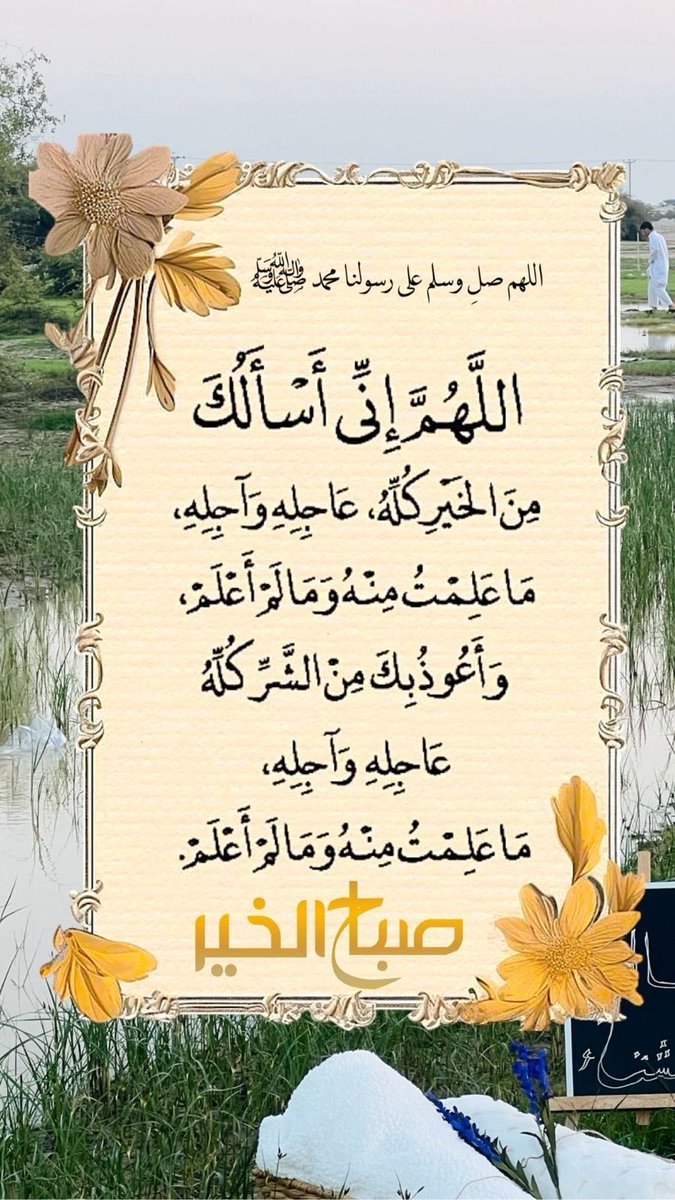 اللهم صلِ وسلم على رسولنا محمد ﷺ
اللَّهُمَّ إِنِّي أَسْأَلُكَ
مِنَ الخَيْرِ كُلِّهُ، عَاجِلِهِ وَآجِلِهِ،
مَا عَلِمْتُ مِنْهُ وَمَا لَمْ أَعْلَمْ،
وَأَعُوذُ بِكَ مِنْ الشَّرِّ كُلِّهُ
عَاجِلِهِ وَآجِلِهِ،
مَا عَلِمْتُ مِنْهُ وَمَا لَمْ أَعْلَمْ.
صباح الخير